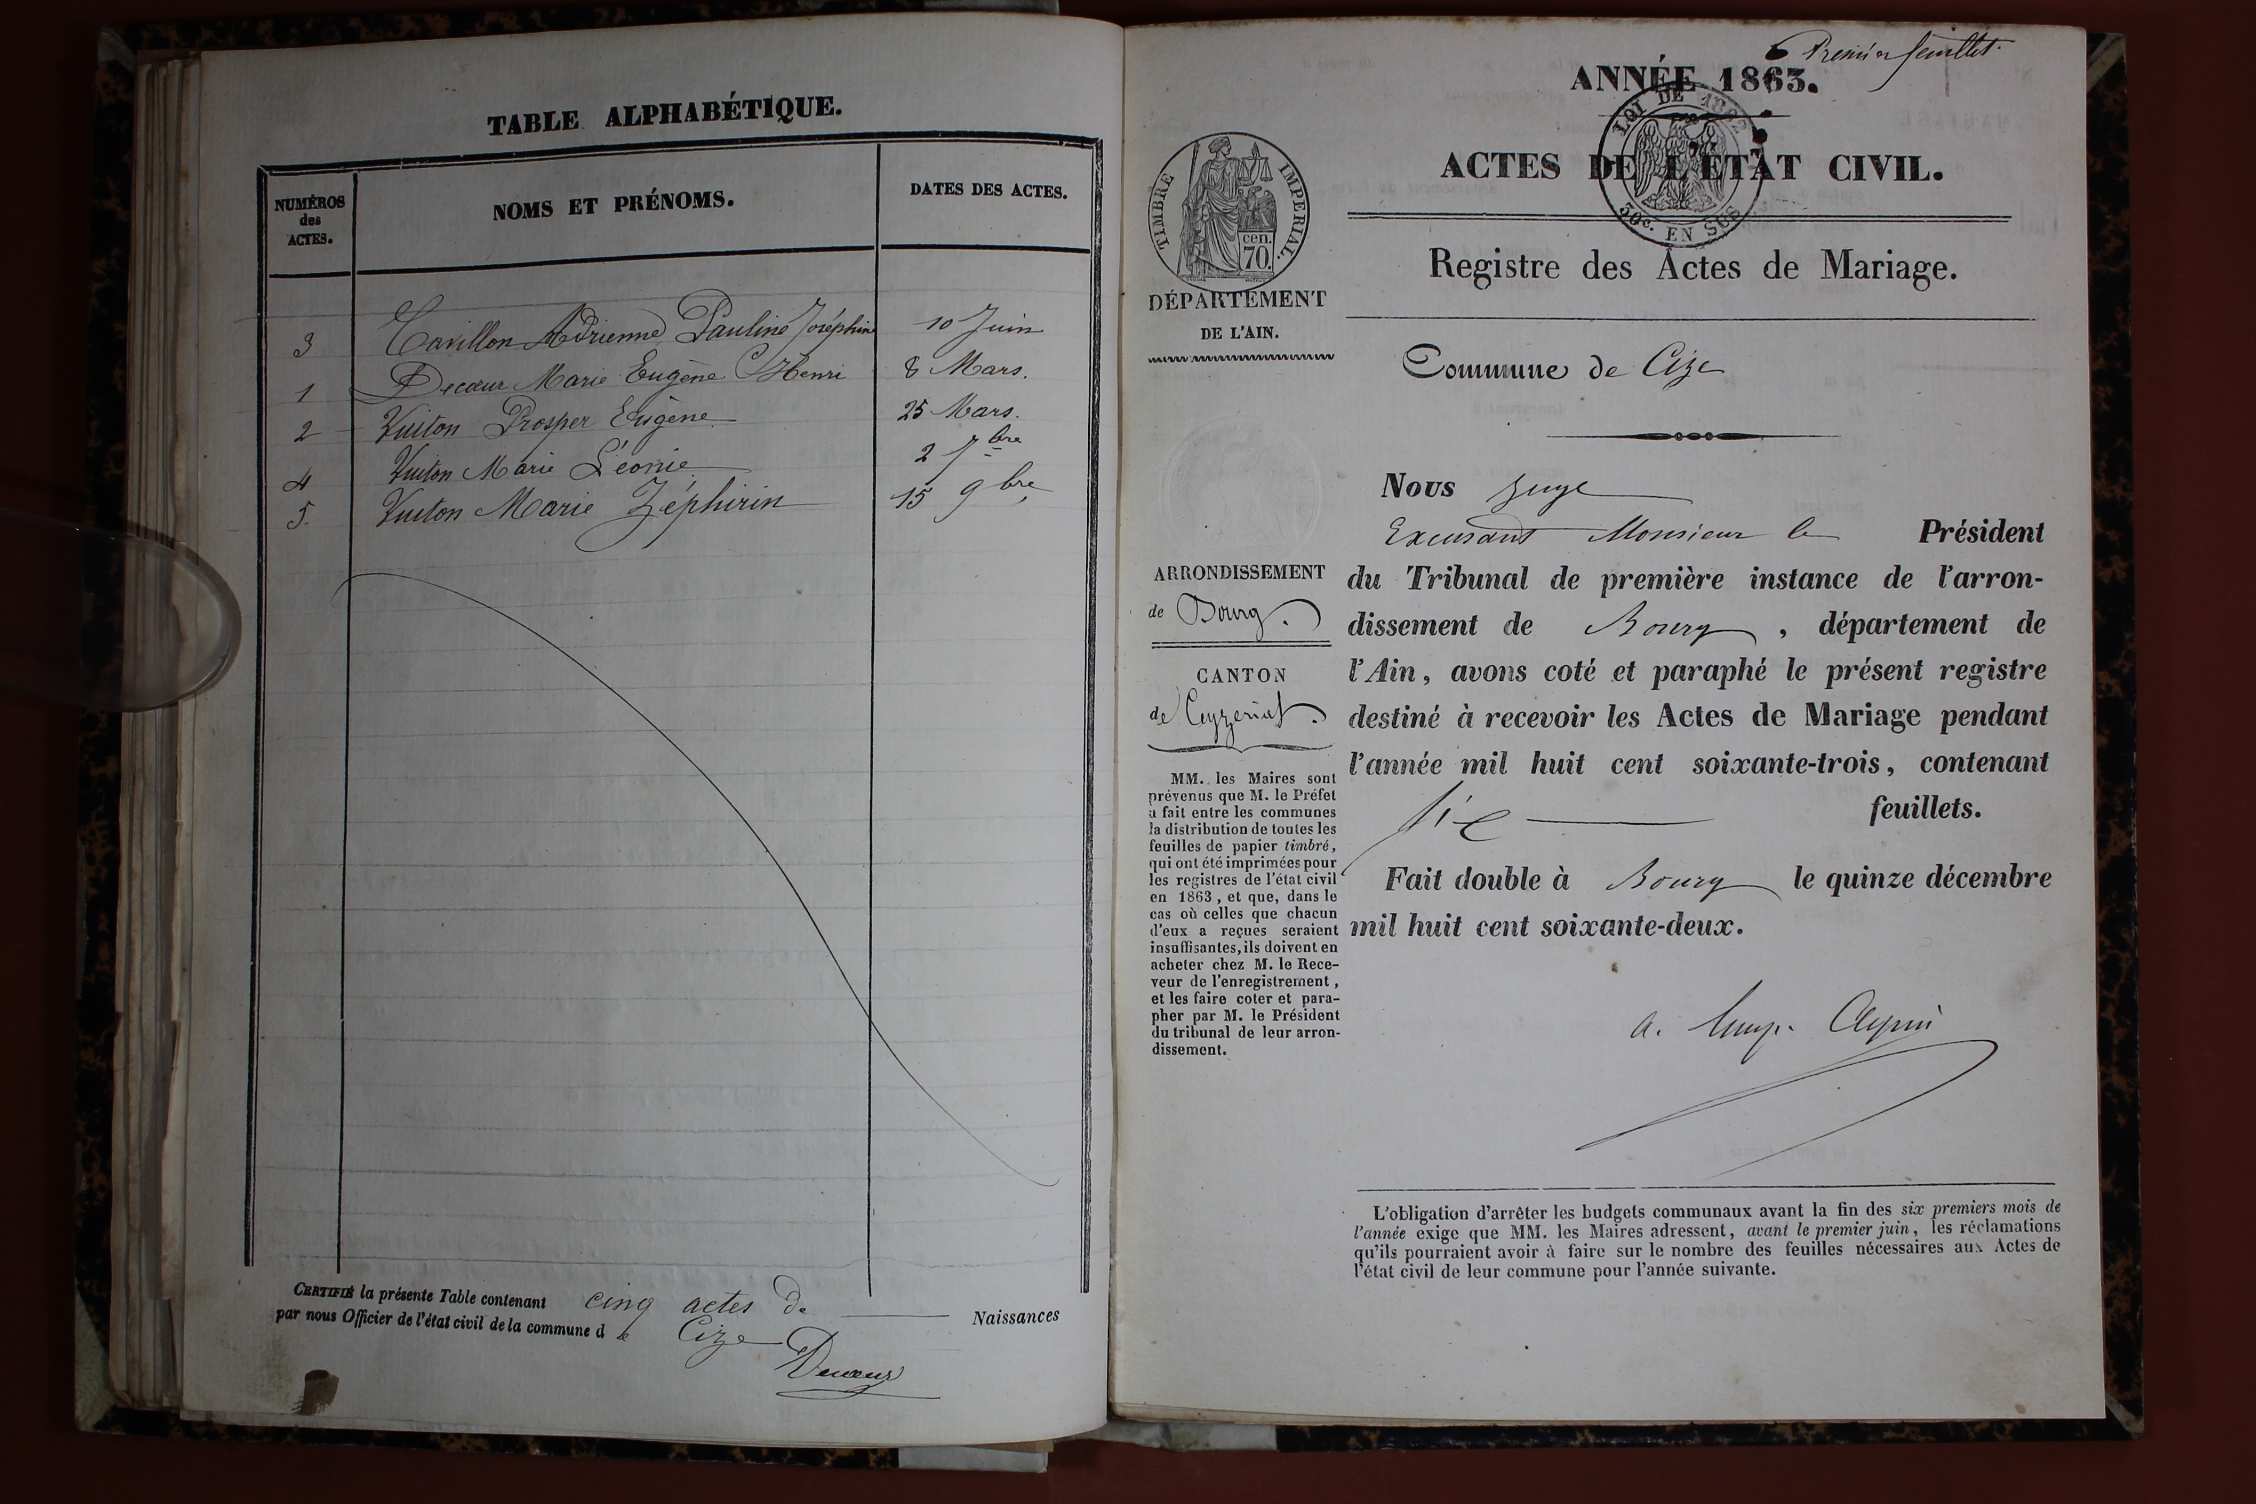 TABLE ALPHABÉTIQUE.
NUMÉROS
des
ACTES.
NOMS ET PRÉNOMS.
DATES DES ACTES.
3 Cavillon Adrienne Pauline Joséphine 10 Juin
1 Decœur Marie Eugène Henri 8 Mars.
2 Vuiton Prosper Eugène 25 Mars.
4 Vuiton Marie Léonie 2 7bre
5. Vuiton Marie Zéphirin 15 9bre
CERTIFIÉ la présente Table contenant cinq actes de Naissances
par nous Officier de l'état civil de la commune de Cize
Decœur
Premier feuillet.
ANNÉE 1863.
LOI DE 1862
30c. EN SUS
ACTES DE L'ÉTAT CIVIL.
TIMBRE IMPÉRIAL.
cen.
70.
Registre des Actes de Mariage.
DÉPARTEMENT
DE L'AIN.
Commune de Cize
Nous Juge
Excusant Monsieur le Président
ARRONDISSEMENT
de Bourg.
CANTON
de Ceyzeriat.
du Tribunal de première instance de l'arron-
dissement de Bourg, département de
l'Ain, avons coté et paraphé le présent registre
destiné à recevoir les Actes de Mariage pendant
l'année mil huit cent soixante-trois, contenant
six feuillets.
Fait double à Bourg le quinze décembre
mil huit cent soixante-deux.
MM. les Maires sont
prévenus que M. le Préfet
a fait entre les communes
la distribution de toutes les
feuilles de papier timbré,
qui ont été imprimées pour
les registres de l'état civil
en 1863, et que, dans le
cas où celles que chacun
d'eux a reçues seraient
insuffisantes, ils doivent en
acheter chez M. le Rece-
veur de l'enregistrement,
et les faire coter et para-
pher par M. le Président
du tribunal de leur arron-
dissement.
L'obligation d'arrêter les budgets communaux avant la fin des six premiers mois de
l'année exige que MM. les Maires adressent, avant le premier juin, les réclamations
qu'ils pourraient avoir à faire sur le nombre des feuilles nécessaires aux Actes de
l'état civil de leur commune pour l'année suivante.